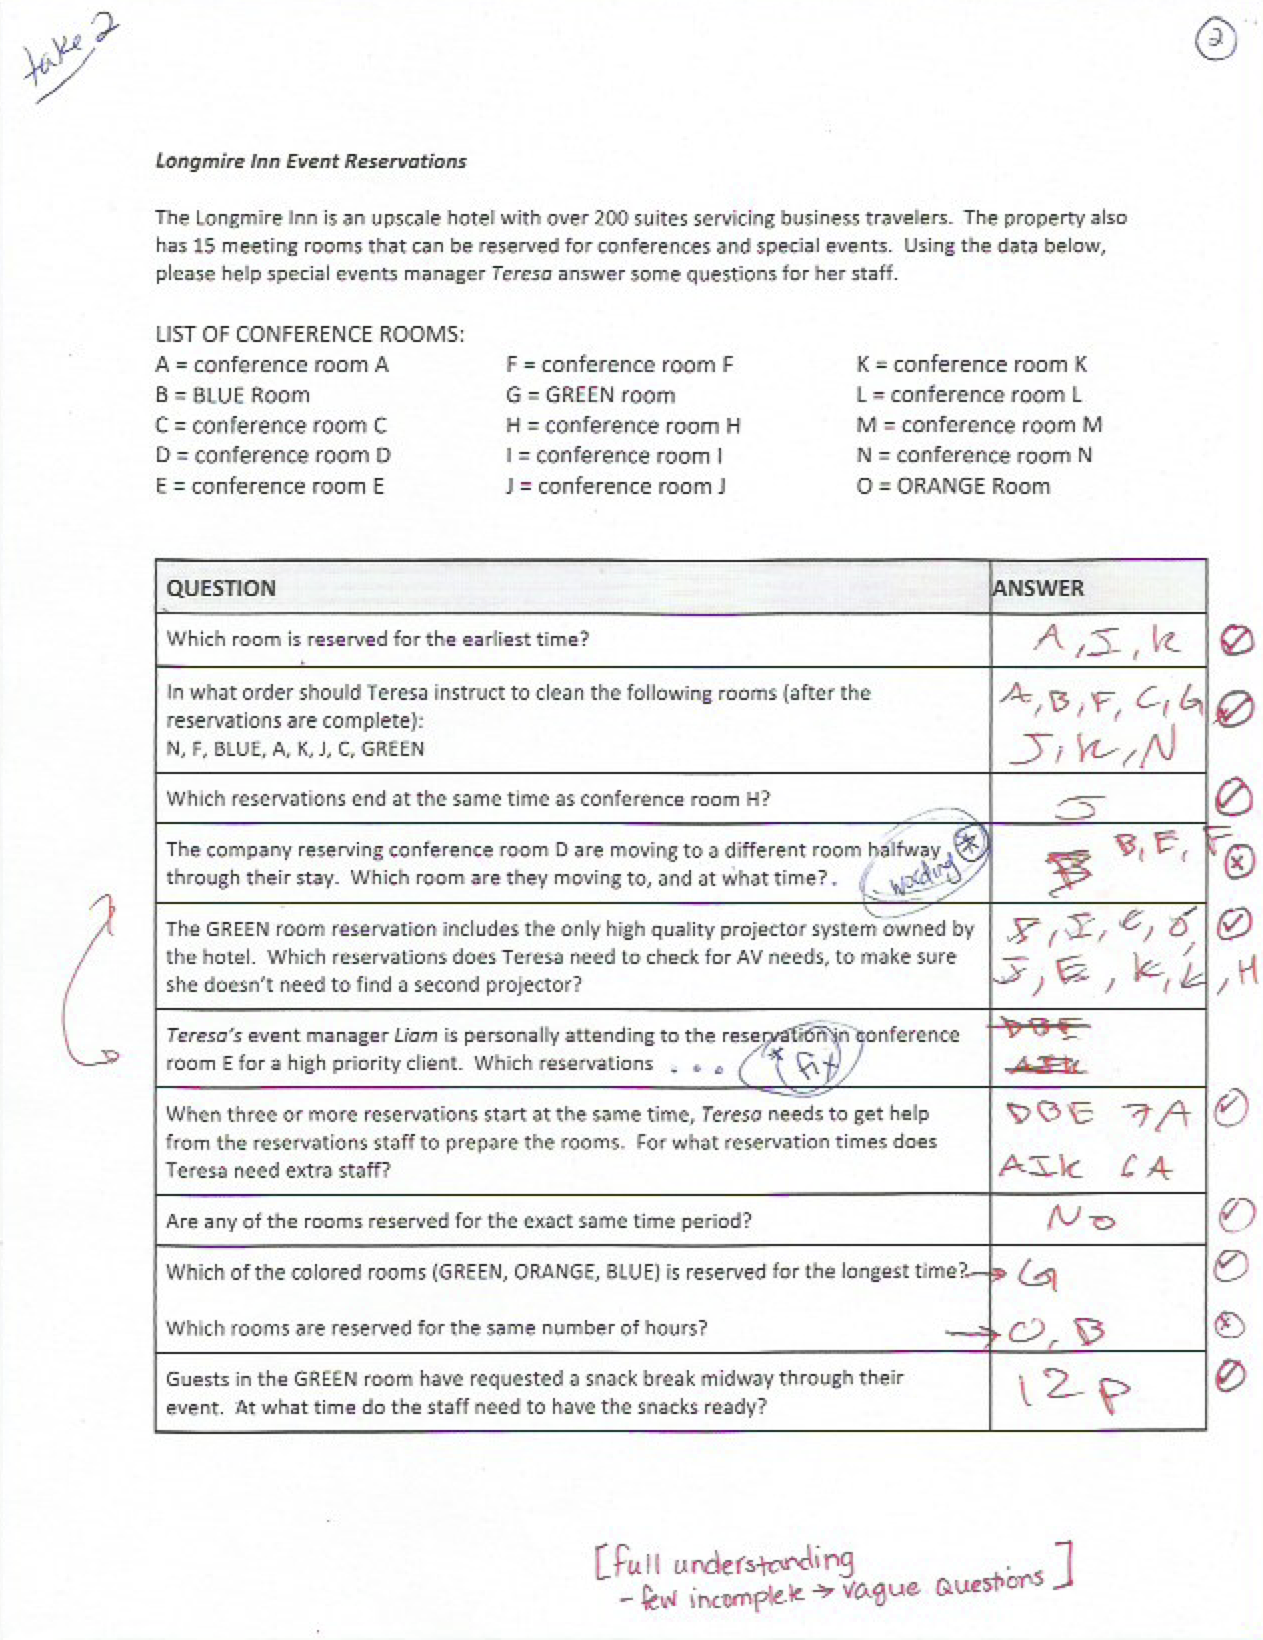 take 2
2
Longmire Inn Event Reservations
The Longmire Inn is an upscale hotel with over 200 suites servicing business travelers. The property also
has 15 meeting rooms that can be reserved for conferences and special events. Using the data below,
please help special events manager Teresa answer some questions for her staff.
LIST OF CONFERENCE ROOMS:
A = conference room A F = conference room F K = conference room K
B = BLUE Room G = GREEN room L = conference room L
C = conference room C H = conference room H M = conference room M
D = conference room D I = conference room I N = conference room N
E = conference room E J = conference room J O = ORANGE Room
QUESTION ANSWER
Which room is reserved for the earliest time? A, I, K
In what order should Teresa instruct to clean the following rooms (after the
reservations are complete):
N, F, BLUE, A, K, J, C, GREEN
A, B, F, C, G
J, K, N
Which reservations end at the same time as conference room H? J
The company reserving conference room D are moving to a different room halfway
through their stay. Which room are they moving to, and at what time?.
* wording
B, E, F
The GREEN room reservation includes the only high quality projector system owned by
the hotel. Which reservations does Teresa need to check for AV needs, to make sure
she doesn't need to find a second projector?
J, E, K, L, H
Teresa's event manager Liam is personally attending to the reservation in conference
room E for a high priority client. Which reservations . . .
* fix
DBE
AIK
When three or more reservations start at the same time, Teresa needs to get help
from the reservations staff to prepare the rooms. For what reservation times does
Teresa need extra staff?
DBE 7A
AIK 6A
Are any of the rooms reserved for the exact same time period? No
Which of the colored rooms (GREEN, ORANGE, BLUE) is reserved for the longest time? → G
Which rooms are reserved for the same number of hours? → O, B
Guests in the GREEN room have requested a snack break midway through their
event. At what time do the staff need to have the snacks ready?
12p
[full understanding
- few incomplete → vague questions]